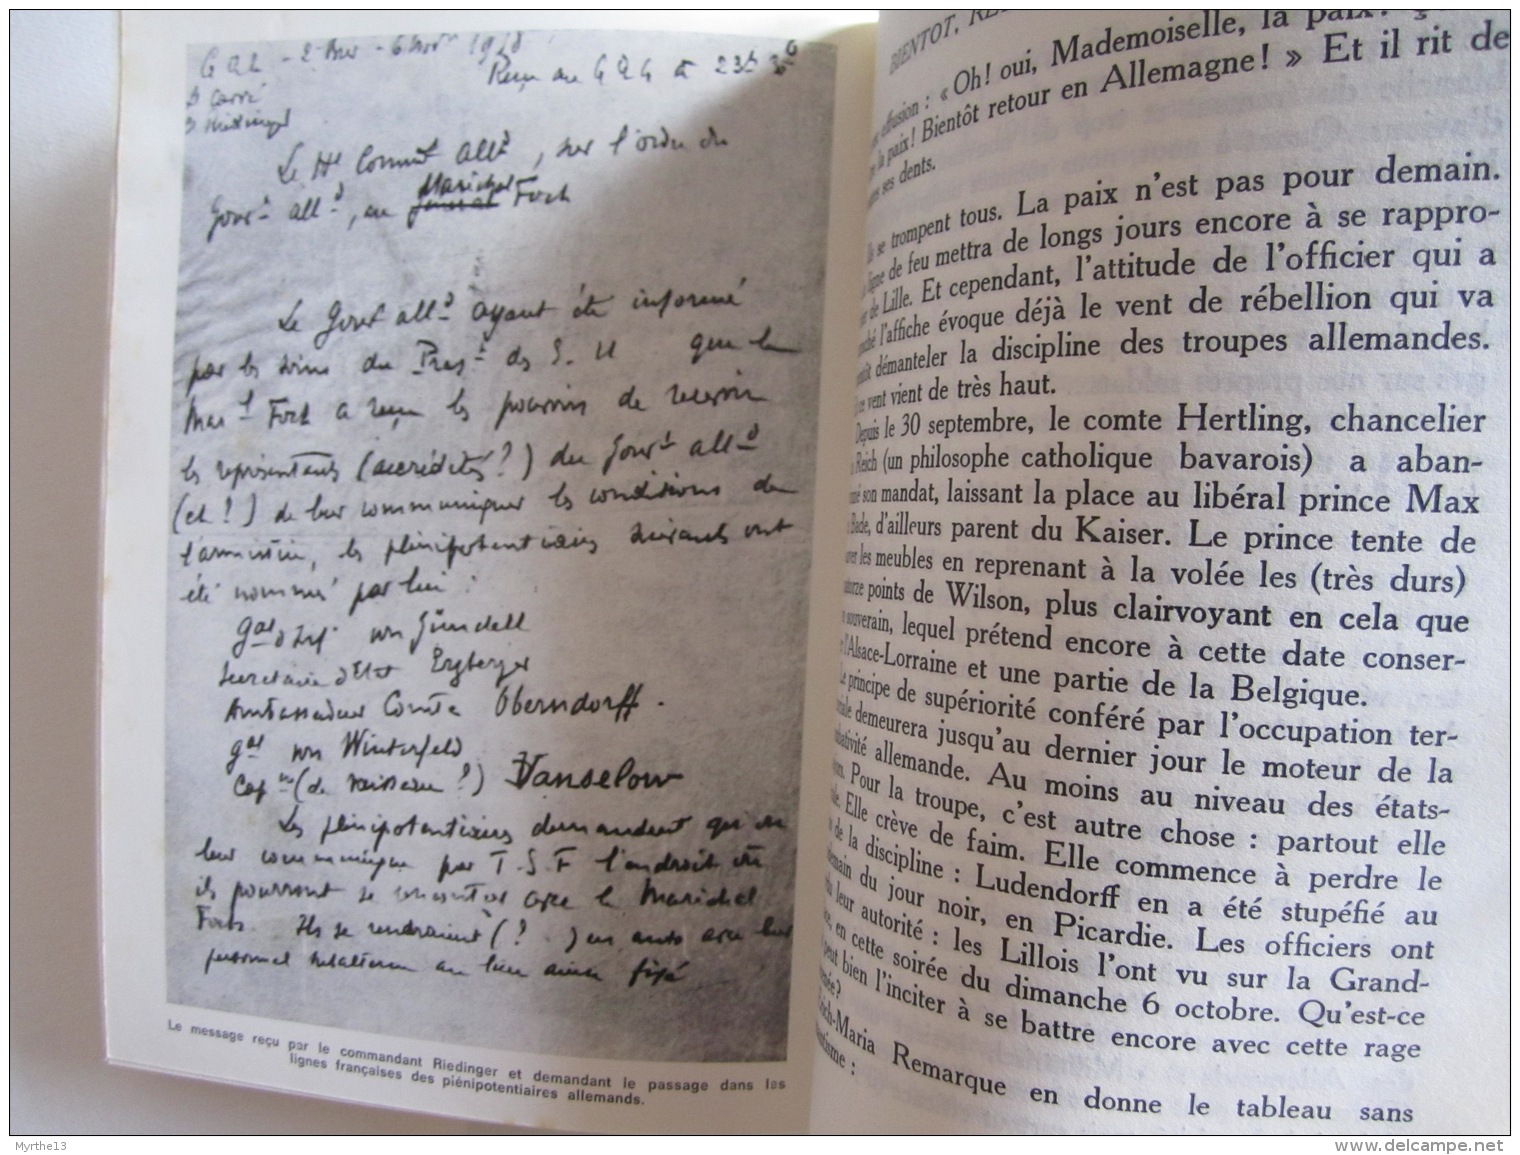 GQG - 2e Bur - 6 Nov 1918
Reçu au GQG à 23h
Carré
Riedinger
Le Ht Commt Alld, sur l'ordre du
Gouvt alld, au général Maréchal Foch
Le Gouvt alld ayant été informé
par les soins du Prest des E. U que le
Maal Foch a reçu les pouvoirs de recevoir
les représentants (accrédités?) du Gouvt alld
(et?) de leur communiquer les conditions de
l'armistice, les plénipotentiaires suivants ont
été nommés par lui :
Gal d'Inf. von Gündell
Secrétaire d'Etat Erzberger
Ambassadeur Comte Oberndorff.
gal von Winterfeld
Capne (de vaisseau?) Vanselow
Les plénipotentiaires demandent qu'on
leur communique par T.S.F l'endroit où
ils pourront se rencontrer avec le Maréchal
Foch. Ils se rendraient (? ) en auto avec leur
personnel subalterne au lieu ainsi fixé
Le message reçu par le commandant Riedinger et demandant le passage dans les
lignes françaises des plénipotentiaires allemands.
BIENTOT,
effusion : « Oh! oui, Mademoiselle, la paix!
la paix! Bientôt retour en Allemagne! » Et il rit de
ses dents.
se trompent tous. La paix n'est pas pour demain.
ligne de feu mettra de longs jours encore à se rappro-
de Lille. Et cependant, l'attitude de l'officier qui a
l'affiche évoque déjà le vent de rébellion qui va
démanteler la discipline des troupes allemandes.
ce vent vient de très haut.
Depuis le 30 septembre, le comte Hertling, chancelier
Reich (un philosophe catholique bavarois) a aban-
son mandat, laissant la place au libéral prince Max
Bade, d'ailleurs parent du Kaiser. Le prince tente de
les meubles en reprenant à la volée les (très durs)
points de Wilson, plus clairvoyant en cela que
souverain, lequel prétend encore à cette date conser-
l'Alsace-Lorraine et une partie de la Belgique.
Le principe de supériorité conféré par l'occupation ter-
demeurera jusqu'au dernier jour le moteur de la
allemande. Au moins au niveau des états-
Pour la troupe, c'est autre chose : partout elle
Elle crève de faim. Elle commence à perdre le
de la discipline : Ludendorff en a été stupéfié au
du jour noir, en Picardie. Les officiers ont
leur autorité : les Lillois l'ont vu sur la Grand-
en cette soirée du dimanche 6 octobre. Qu'est-ce
peut bien l'inciter à se battre encore avec cette rage
Erich-Maria Remarque en donne le tableau sans
Myrthe13
www.delcampe.net